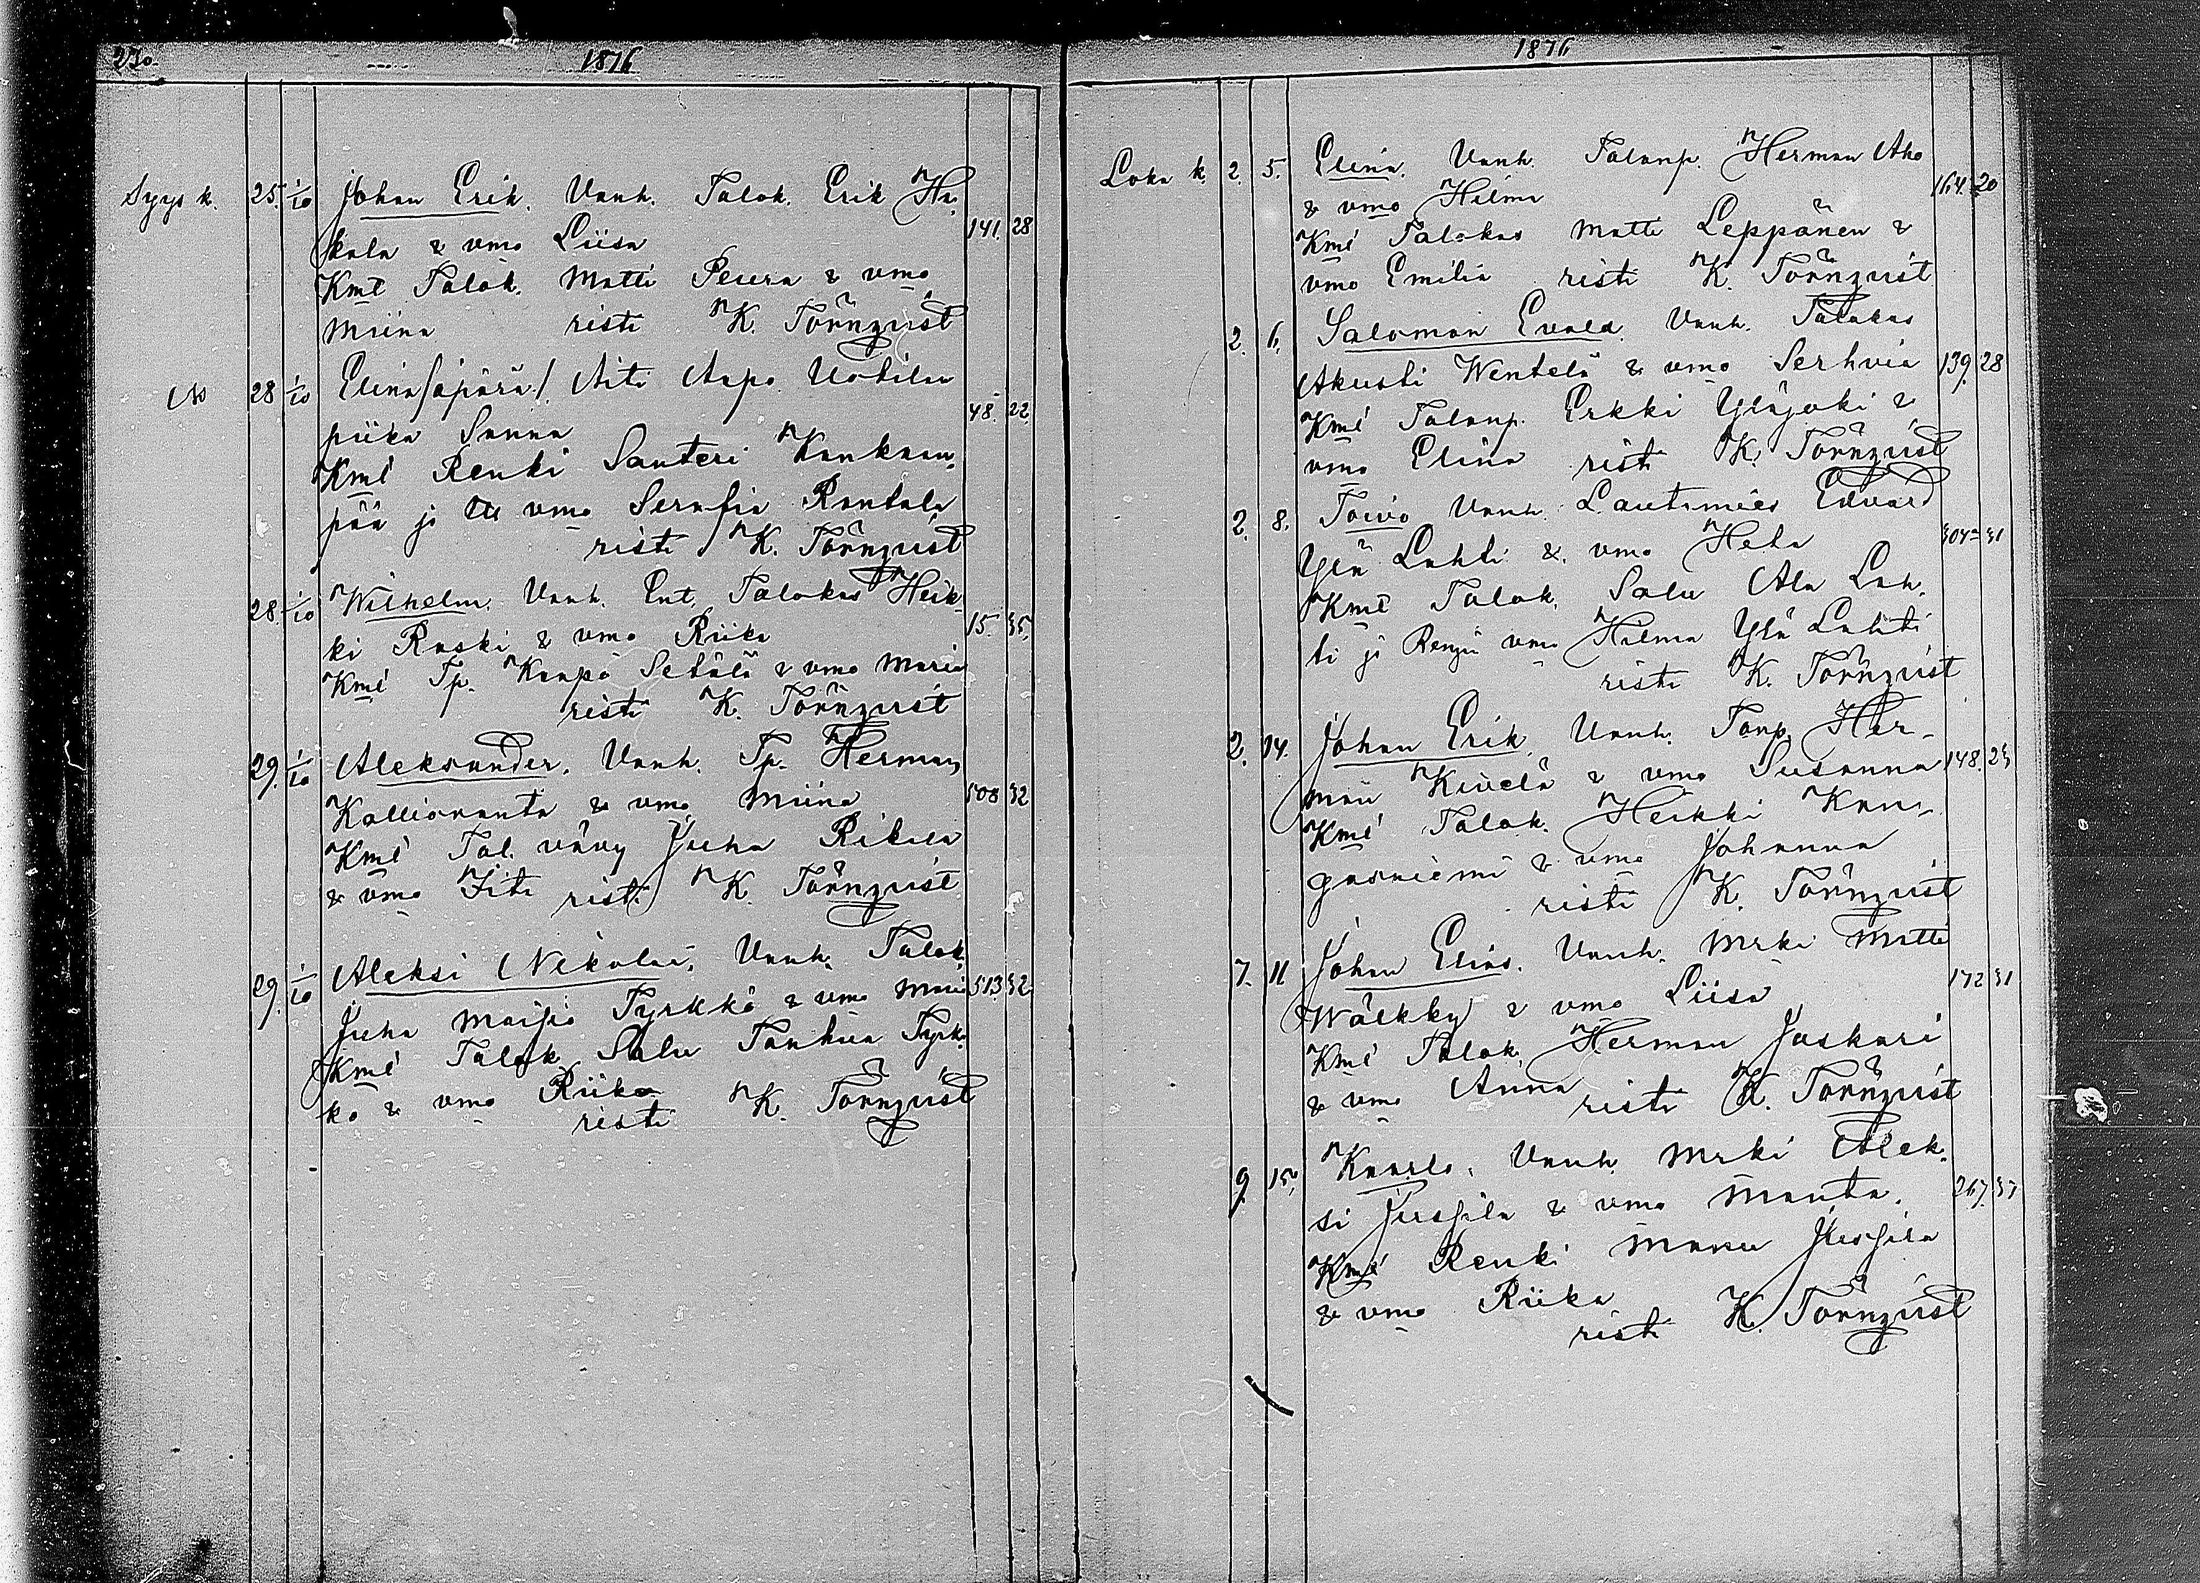 230. 1876
Syys k. 25. 1/10 Johan Erik. Vanh. Talok. Erik Ha-
kala & vmo Liisa 141. 28
Kmt Talok. Matti Peura & vmo
Miina risti K. Törnqvist
No 28 1/10 Elina /äpärä/. Äiti Aapo Uotilan
piika Sanna 48. 22.
Kmt Renki Santeri Kankaan-
pää ja vmo Serafia Rantala
risti K. Törnqvist
28. 1/10 Wilhelm. Vanh. Ent. Talokas Heik-
ki Raski & vmo Riika 15. 35.
Kmt Tp. Kaapo Setälä & vmo Maria
risti K. Törnqvist
29. 1/10 Aleksander. Vanh. Tp. Herman
Kallioranta & vmo Miina 508 32
Kmt Tal. vävy Juha Rikala
& vmo Fiti risti K. Törnqvist
29. 1/10 Aleksi Nikolai. Vanh. Talok.
Juha Maijia Tyrkkö & vmo Maria 513. 32.
Kmt Talok Salu Tanhua Tyrk-
kö & vmo Riika
risti K. Törnqvist
1876
Loka k. 2. 5. Elina. Vanh. Talonp. Herman Aho
& vmo Hilma 164. 20
Kmt Talokas Matti Leppänen &
vmo Emilia risti K. Törnqvist
2. 6. Salomon Evald. Vanh. Talokas
Akusti Wentelä & vmo Serhvia 139. 28
Kmt Talonp. Erkki Yläjoki &
vmo Elina risti K. Törnqvist
2. 8. Toivo Vanh. Lautamies Edvard
Ylä Lahti & vmo Heta 304 31
Kmt Talok. Salu Ala Lah-
ti ja Rengin vmo Hilma Ylä Lahti
risti K. Törnqvist
2. 14. Johan Erik. Vanh. Torp. Her-
man Kivelä & vmo Susanna 148. 29
Kmt Talok. Heikki Kan-
gasniemi & vmo Johanna
risti K. Törnqvist
7. 11 Johan Elias. Vanh. Mrki Matti
Wälkky & vmo Liisa 172 31
Kmt Talok. Herman Jaskari
& vmo Anna
risti K. Törnqvist
9. 15. Kaarlo. Vanh. Mrki Alek-
si Jussila & vmo Manta. 267. 37
Kmt Renki Manu Jussila
& vmo Riika
risti K. Törnqvist